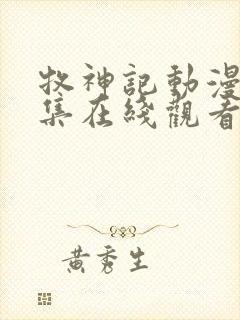 牧神記動漫
集在綫觀看
黃秀生